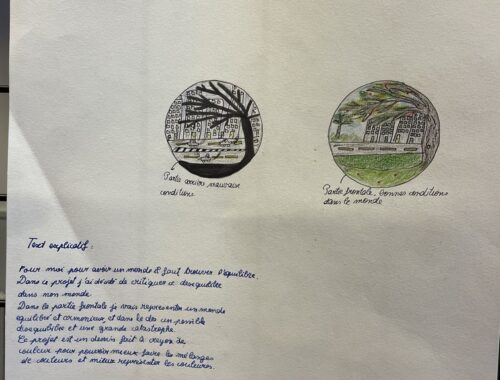 Partie arrière, mauvaise
conditions
Partie frontale, bonnes conditions
dans le monde
Text explicatif:
Pour moi pour avoir un monde il faut trouver l'équilibre.
Dans ce projet j'ai décidé de critiquer ce desequilibre
dans mon monde.
Dans la partie frontale je vais representer un monde
equilibré et armonieux, et dans le dos un possible
desequilibre et une grande catastrophe.
Le projet est un dessin fait à crayon de
couleur pour pouvoir mieux faire les mélanges
de couleurs et mieux representer les couleurs.